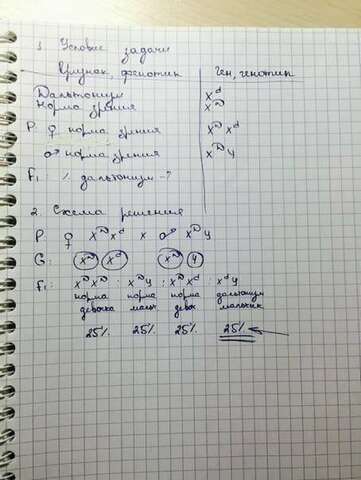 1. Условие задачи
Признак, фенотип Ген, генотип
Дальтонизм X^d
Норма зрения X^D
P ♀ норма зрения X^D X^d
♂ норма зрения X^D Y
F1: % дальтонизм - ?
2. Схема решения
P: ♀ X^D X^d x ♂ X^D Y
G: X^D X^d X^D Y
F1: X^D X^D : X^D Y : X^D X^d : X^d Y
норма норма норма дальтонизм
девочка мальч. девоч. мальчик
25% 25% 25% 25%